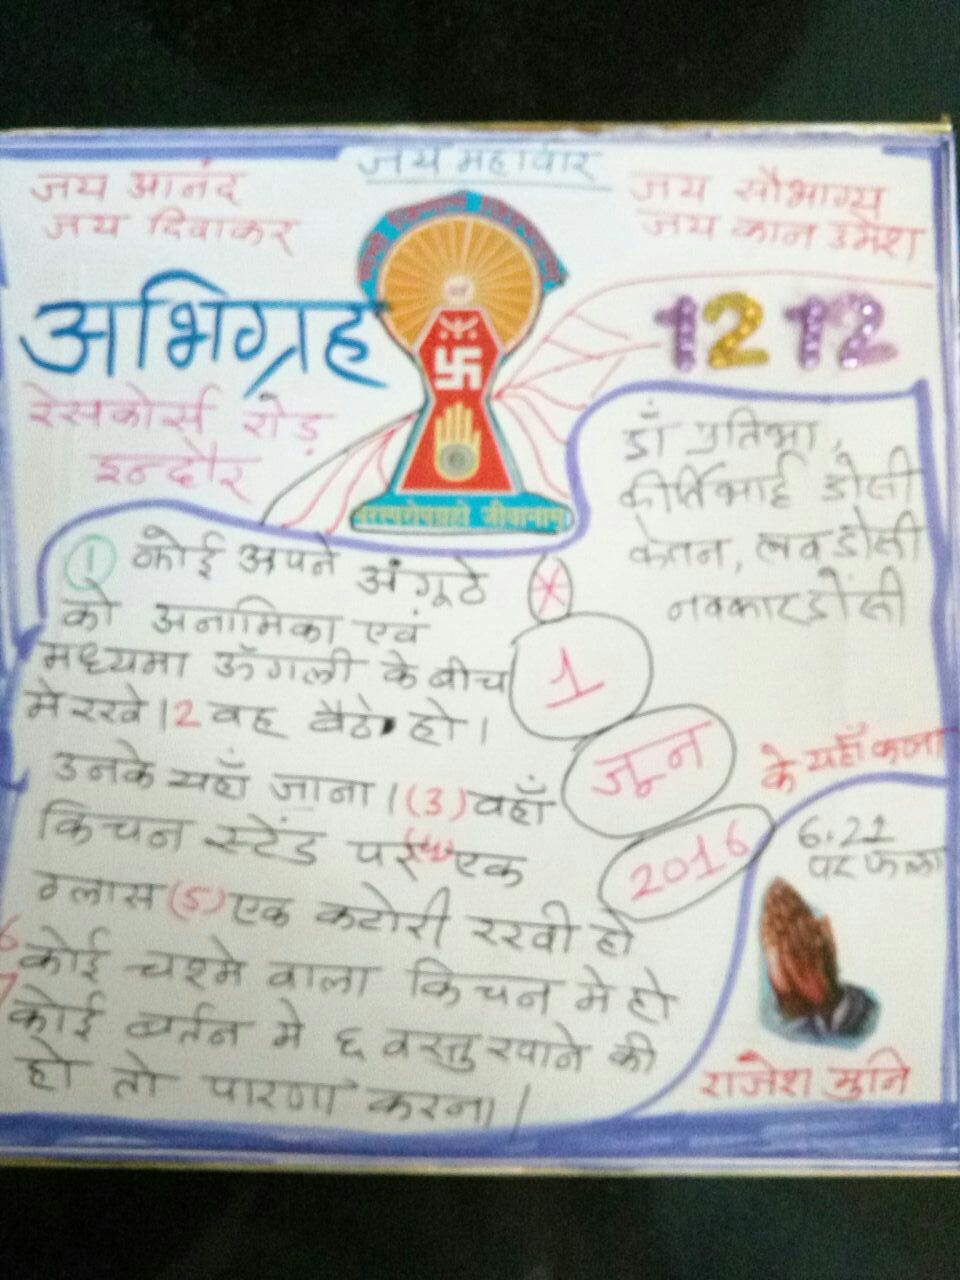 जय महावीर
जय आनंद
जय दिवाकर
जय सौभाग्य
जय कान उमेश
अभिग्रह
1212
रेसकोर्स रोड़
इन्दौर
परस्परोपग्रहो जीवानाम्
डॉ प्रतिभा,
कीर्तिभाई डोसी
केतन, लव डोसी
नवकार डोसी
के यहाँ फला
6.22
पर फला
① कोई अपने अंगूठे
को अनामिका एवं
मध्यमा ऊँगली के बीच
मे रखे। 2 वह बैठे हो।
उनके यहाँ जाना। (3) वहाँ
किचन स्टेंड पर (4) एक
ग्लास (5) एक कटोरी रखी हो
6 कोई चश्मे वाला किचन मे हो
7 कोई बर्तन मे ६ वस्तु खाने की
हो तो पारणा करना।
1
जून
2016
राजेश मुनि